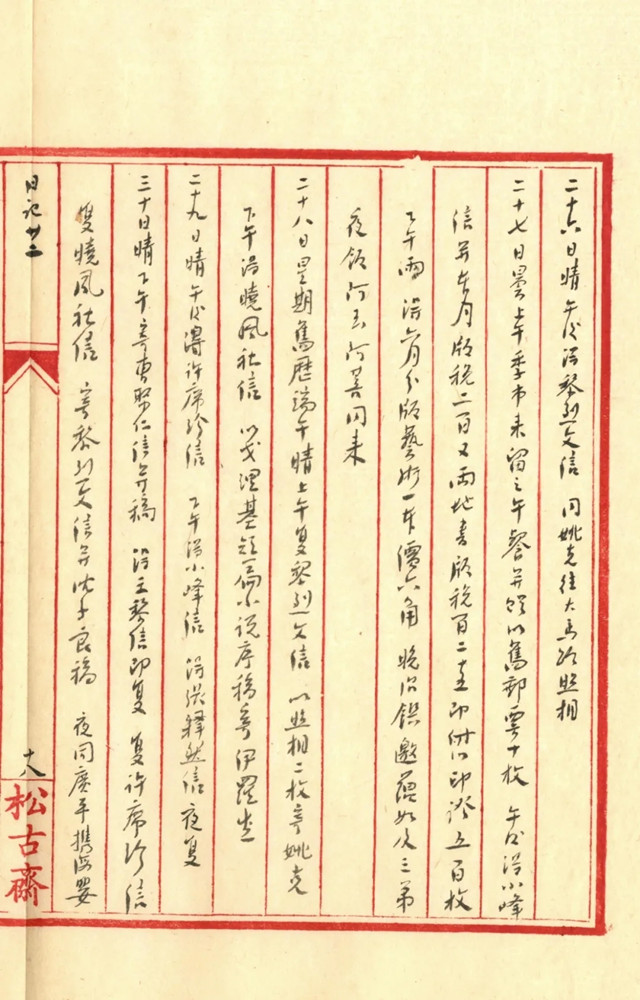 二十六日晴午后得黎烈文信 同姚克往大馬路照相
二十七日曇上午季市來留之午餐并贈以舊邮票十枚 午后得小峰
信并本月版稅二百又兩地書版稅百二十五即付以印證五百枚
下午雨 得六月分版藝術一本價六角 晚治饌邀蘊如及三弟
夜飯阿玉阿菩同來
二十八日星期舊歷端午晴上午复黎烈文信 以照相二枚寄姚克
下午得曉風社信 以戈理基短篇小説序稿寄伊羅生
二十九日晴午后得許席珍信 下午得小峰信 得張釋然信夜复
三十日晴下午寄曹聚仁信并稿 得王黎信即复 复許席珍信
复曉風社信 寄黎烈文信并沈子良稿 夜同廣平攜海嬰
日記廿二
十八
松古齋